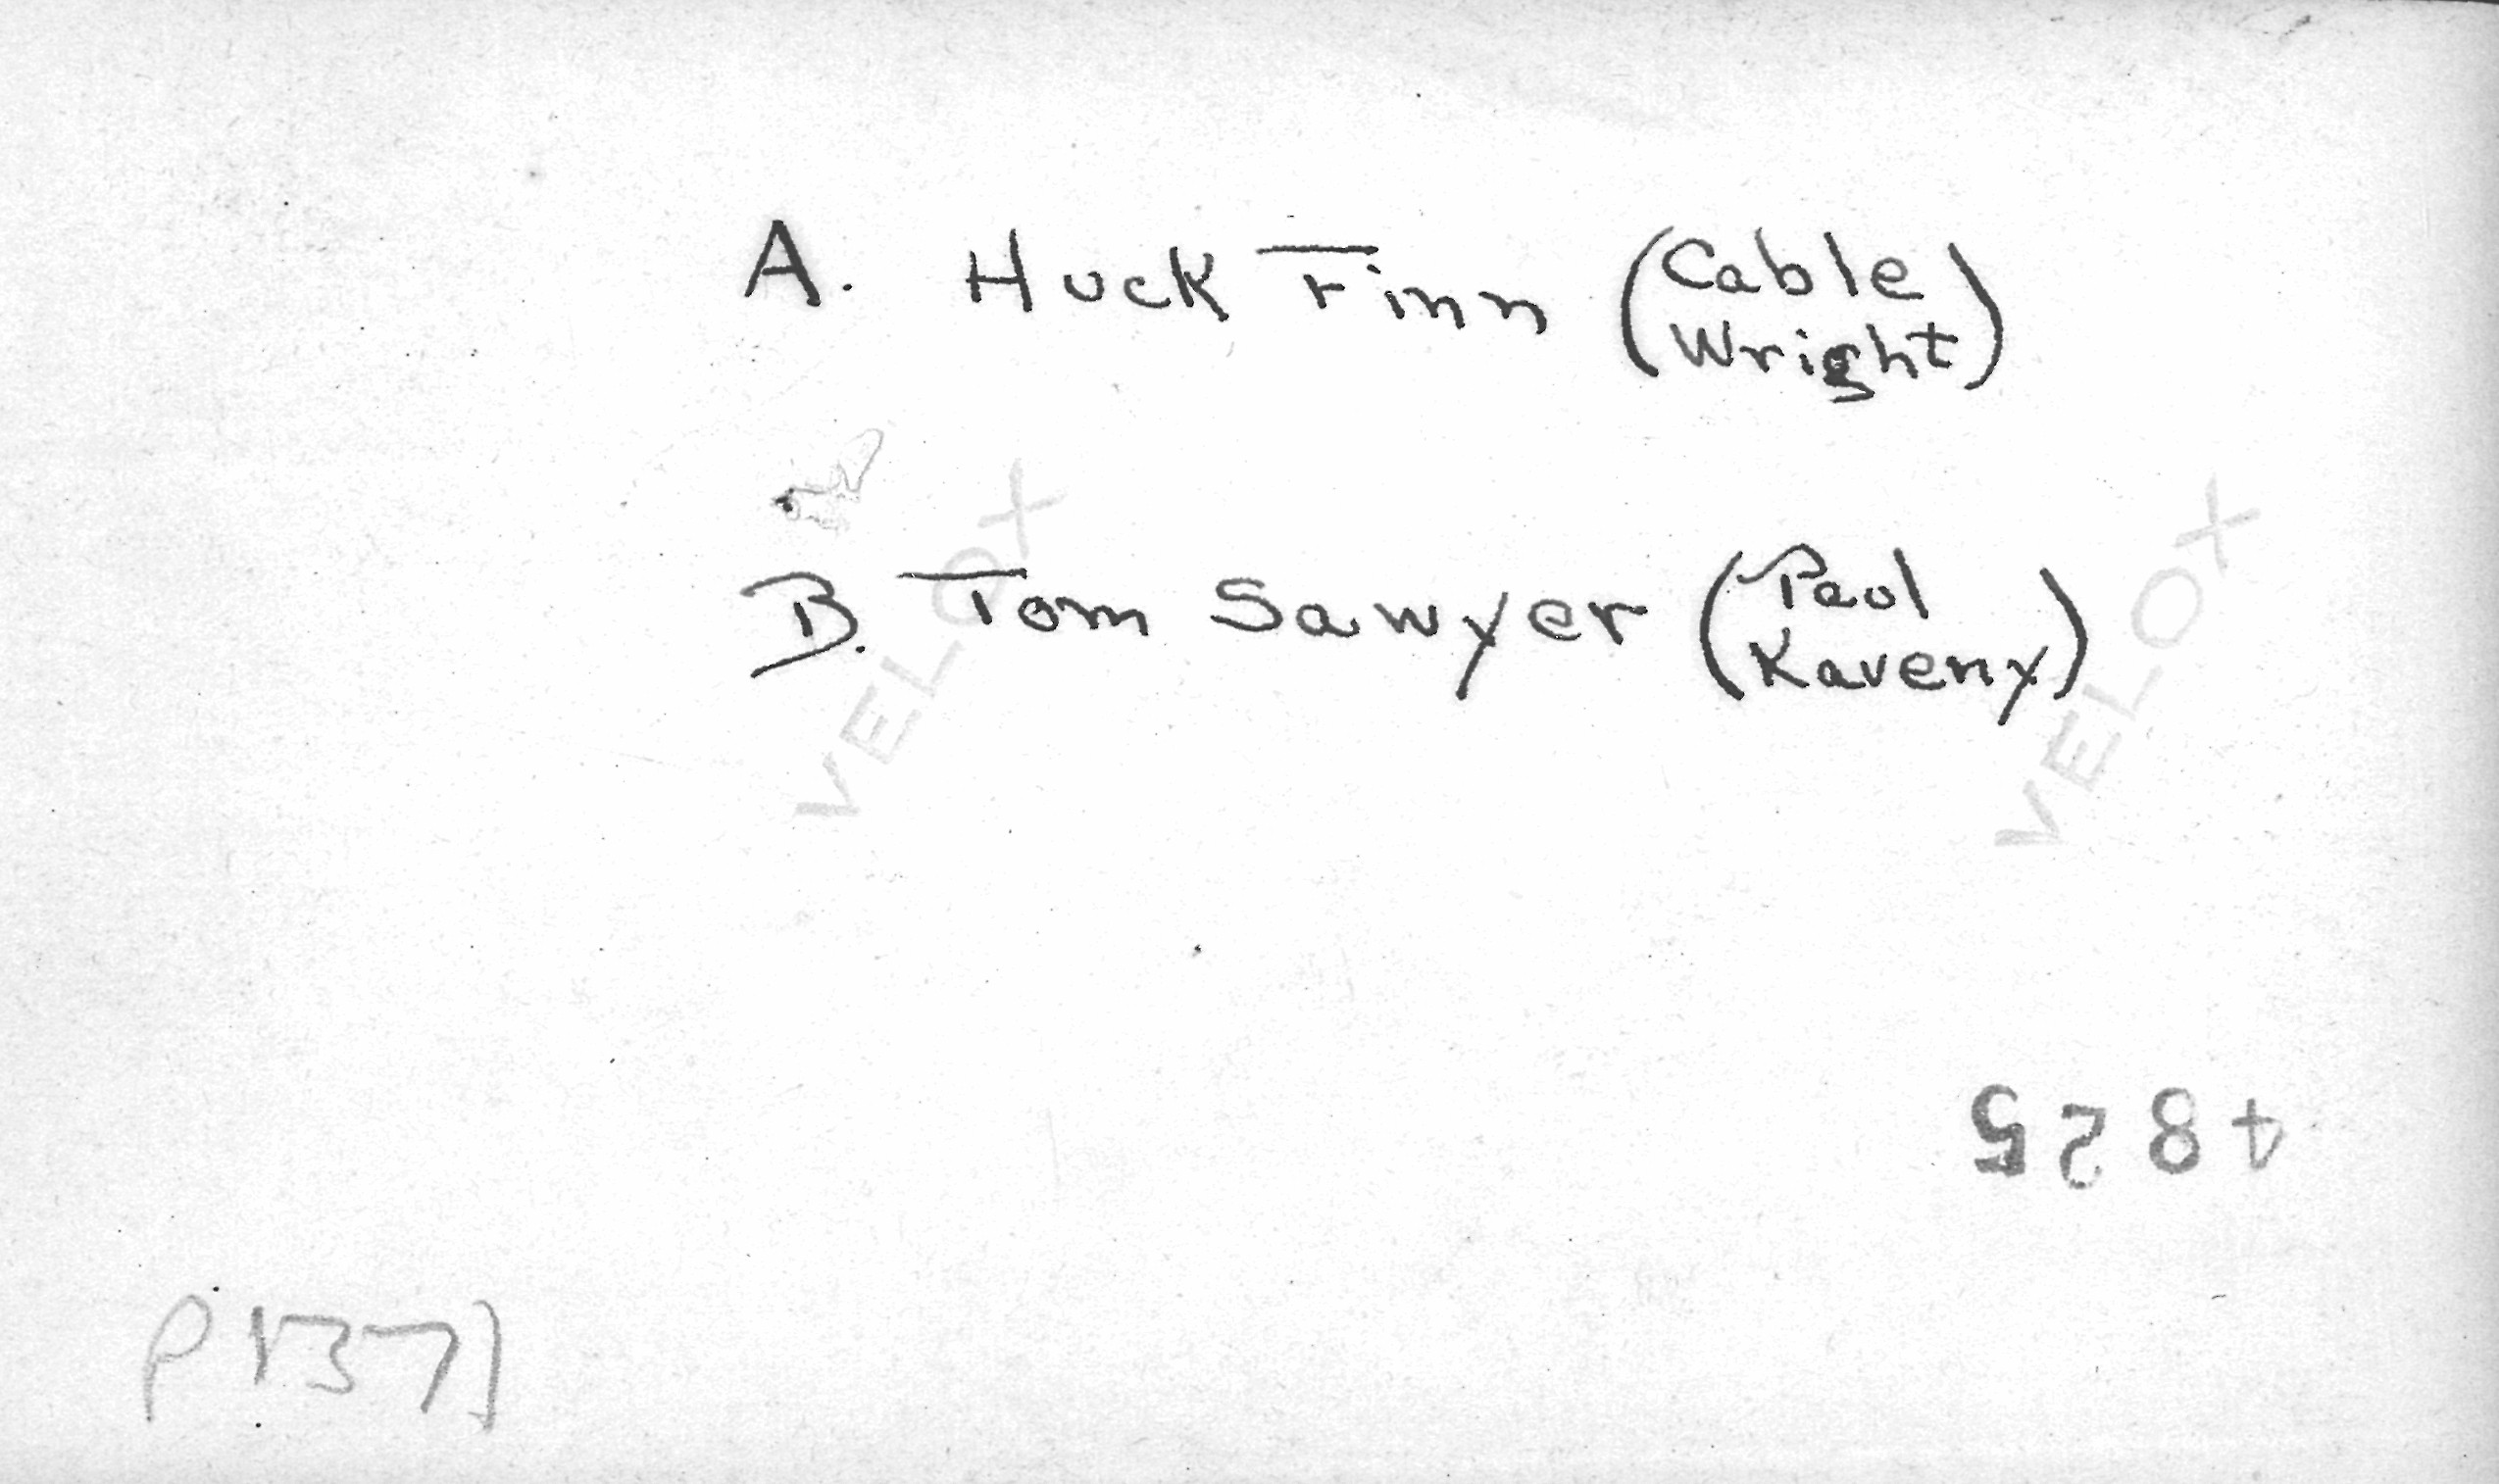 A. Huck Finn (Cable
Wright)
VELOX VELOX
B. Tom Sawyer (Paul
Kaveny)
4825